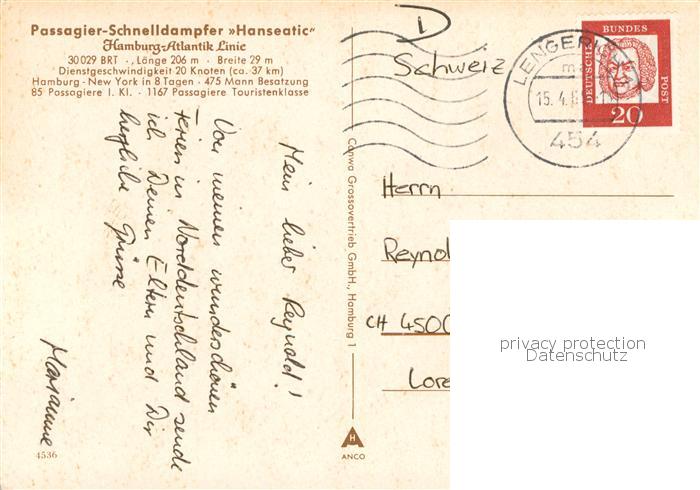 Passagier-Schnelldampfer »Hanseatic“
Hamburg-Atlantik Linie
30 029 BRT · Länge 206 m · Breite 29 m
Dienstgeschwindigkeit 20 Knoten (ca. 37 km)
Hamburg - New York in 8 Tagen · 475 Mann Besatzung
85 Passagiere I. Kl. · 1167 Passagiere Touristenklasse
Mein lieber Reynold!
Von meinen wunderschönen
Ferien in Norddeutschland sende
ich Deinen Eltern und Dir
herzliche Grüsse
Marianne
4536
Conwa Grossovertrieb GmbH., Hamburg 1
H
ANCO
D
Schweiz
LENGERICH
15.4.
454
DEUTSCHE
BUNDES
POST
20
Herrn
Reynol
CH 4500
Lore
privacy protection
Datenschutz